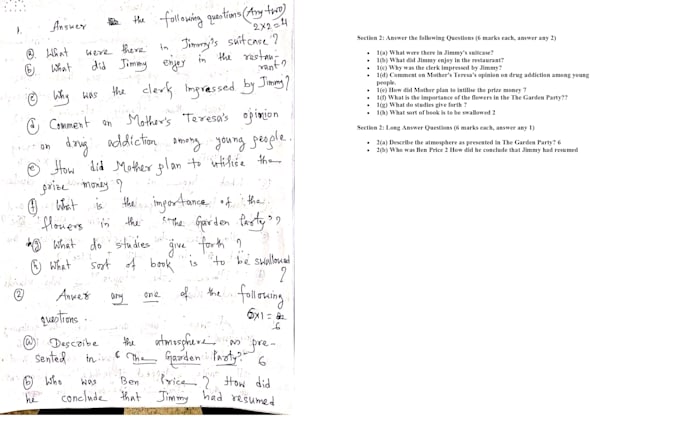 1. Answer the following questions (Any two)
2x2=4
(a) What were there in Jimmy's suitcase?
(b) What did Jimmy enjoy in the restau-
rant?
(c) Why was the clerk impressed by Jimmy?
(d) Comment on Mother's Teresa's opinion
on drug addiction among young people.
(e) How did Mother plan to utilise the
prize money?
(f) What is the importance of the
flowers in the "The Garden Party"?
(g) What do studies give forth?
(h) What sort of book is to be swallowed
?
(2) any one of the following
questions.
6x1=
6
(a) Describe the atmosphere as pre-
sented in "The Garden Party?" 6
(b) Who was Ben Price? How did
he conclude that Jimmy had resumed
Section 2: Answer the following Questions (6 marks each, answer any 2)
1(a) What were there in Jimmy's suitcase?
1(b) What did Jimmy enjoy in the restaurant?
1(c) Why was the clerk impressed by Jimmy?
1(d) Comment on Mother's Teresa's opinion on drug addiction among young
people.
1(e) How did Mother plan to the prize money ?
1(f) What is the importance of the flowers in the The Garden Party??
1(g) What do studies give forth ?
1(h) What sort of book is to be swallowed ?
Section 2: Long Answer Questions (6 marks each, answer any 1)
2(a) Describe the atmosphere as presented in The Garden Party? 6
2(b) Who was Ben Price ? How did he conclude that Jimmy had resumed